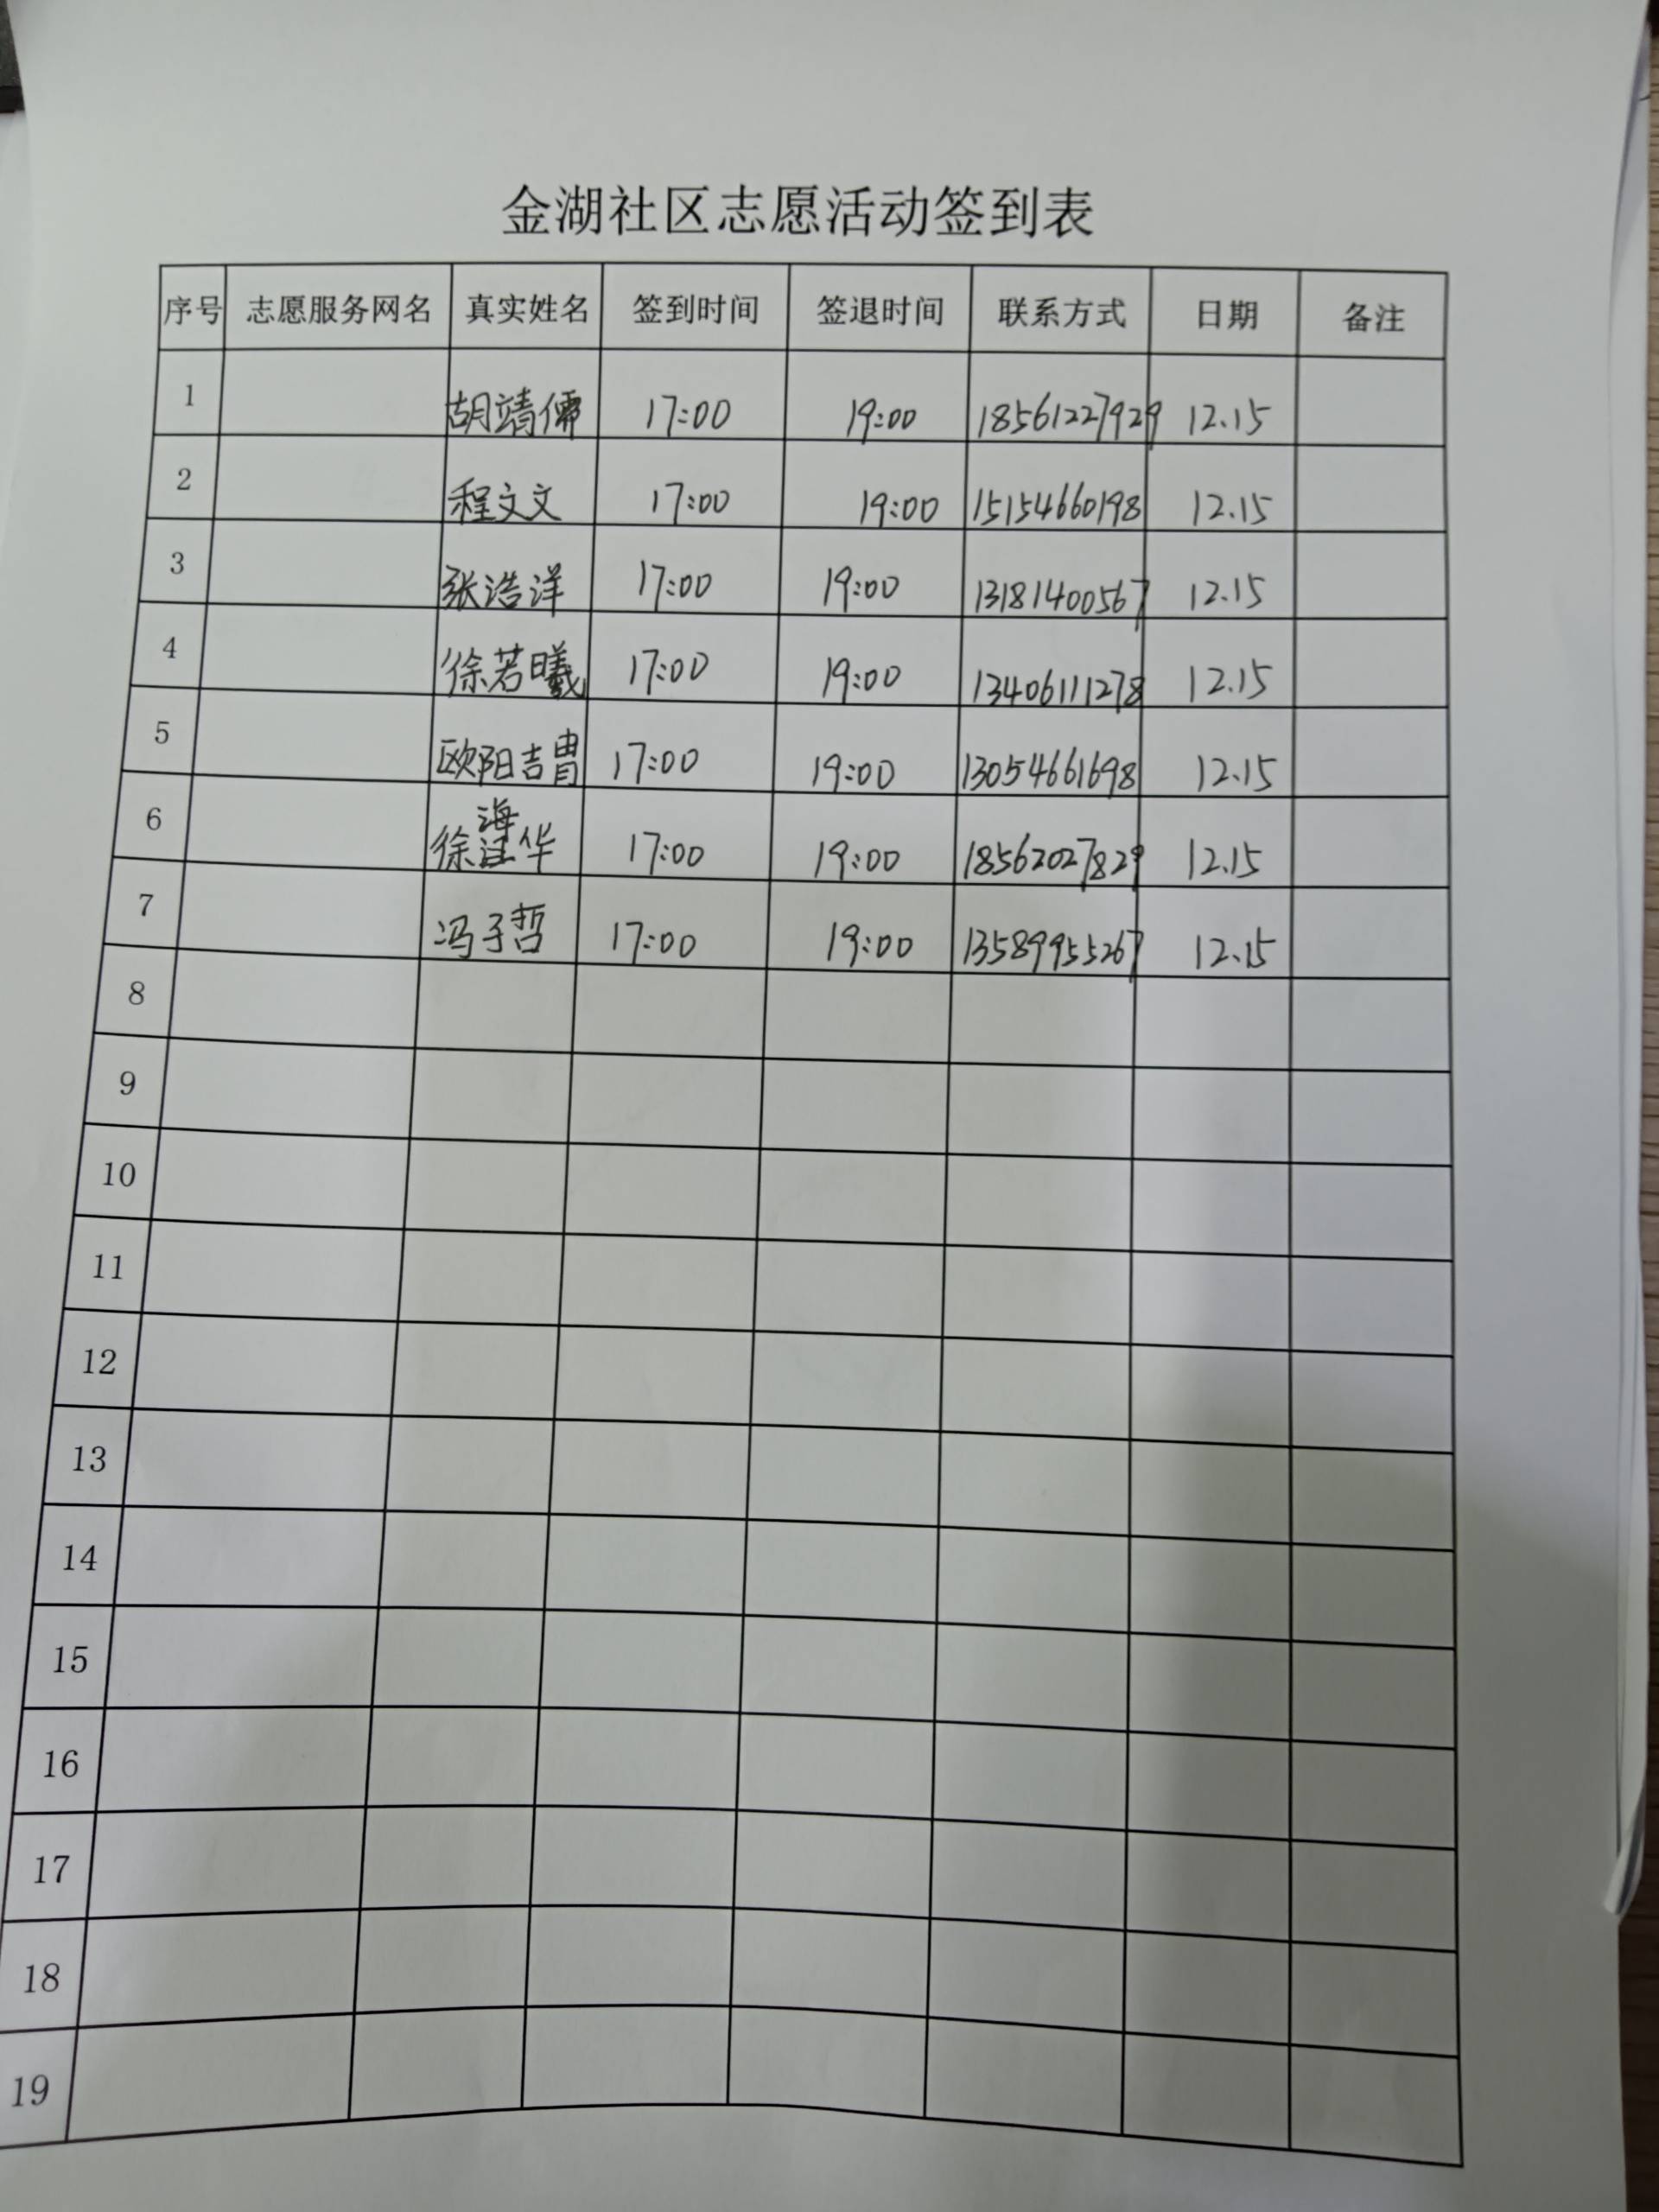 金湖社区志愿活动签到表
序号 志愿服务网名 真实姓名 签到时间 签退时间 联系方式 日期 备注
1 胡靖儒 17:00 19:00 18561227929 12.15
2 程文文 17:00 19:00 15154660198 12.15
3 张浩洋 17:00 19:00 13181400567 12.15
4 徐若曦 17:00 19:00 13406111278 12.15
5 欧阳吉胄 17:00 19:00 13054661698 12.15
6 徐海华 17:00 19:00 18562027829 12.15
7 冯子哲 17:00 19:00 13589955267 12.15
8
9
10
11
12
13
14
15
16
17
18
19